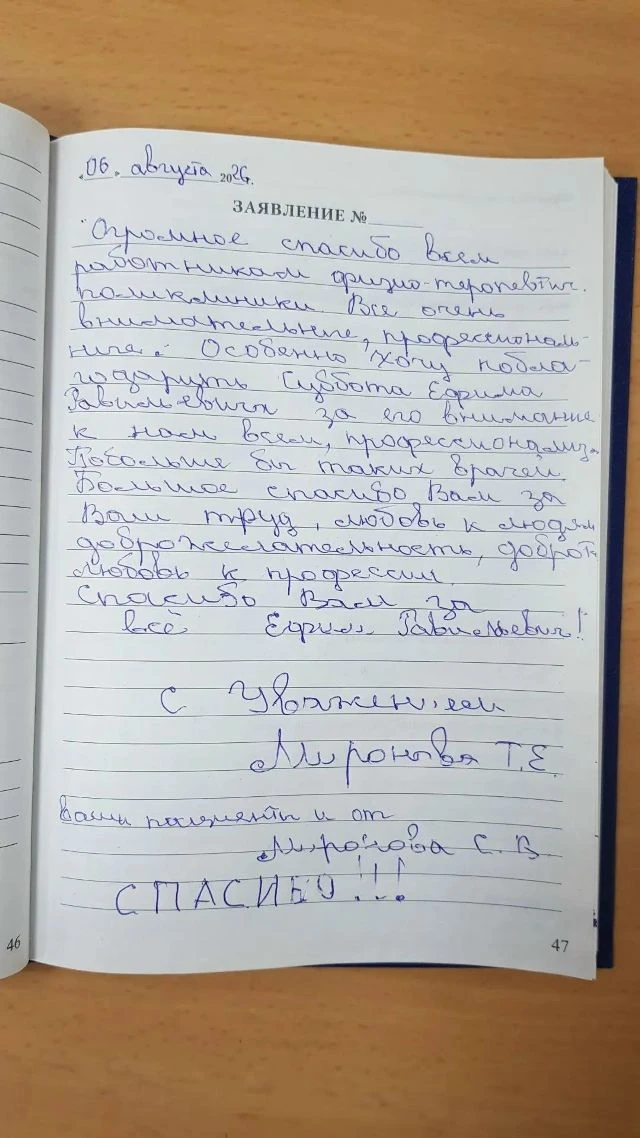 „06" августа 2026г.
ЗАЯВЛЕНИЕ №
Огромное спасибо всем
работникам физио-терапевтич.
поликлиники. Все очень
внимательные, профессиональ-
ные. Особенно хочу побла-
годарить Суббота Ефрима
Равильевича за его внимание
к нам всем, профессионализ.
Побольше бы таких врачей.
Большое спасибо Вам за
Ваш труд, любовь к людям
доброжелательность, доброта
любовь к профессии.
Спасибо Вам за
всё Ефрим Равильевич!
С Уважением
Миронова Т.Е.
Ваши пациенты и от
Миронова С. В.
СПАСИБО!!!
46
47